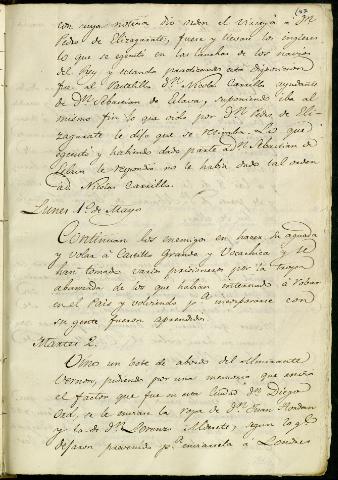 con cuya noticia dio orden el Virrey à Dn
Pedro de Elizagarate, fuese y llevase los ingleses
lo que se egecutò en las lanchas de los navios
del Rey y estando practicando esta disposicion
fue al Pastelillo Dn Nicolas Carrillo ayudante
de Dn Sebastian de Eslava, suponiendo iba al
mismo fin lo que oido por Dn Pedro de Eli-
zagarate le dijo que se retiraba. Lo que
egecutò y habiendo dado parte a Dn Sebastian de
Eslava le respondio no le habia dado tal orden
ad Nicolas Carrillo.
Lunes 1o de Mayo
Continuan los enemigos en hacer su aguada
y volar à Castillo Grande y Bocachica y se
han tomado varios prisioneros por la tropa
abanzada de los que habian internado à robar
en el Pais y volviendo pa incorporarse con
su gente fueron aprendidos.
Martes 2.
Vino un bote de abordo del Almirante
Vernon, pidiendo por una memoria que envio
el factor que fue en esta Ciudad Dn Diego
Ord, se le enviase la ropa de Dn Juan Jordan
y la de Dn Lorenzo Alderete, aquien lo qe
dejaron prevenido pa enviarsela à Londres